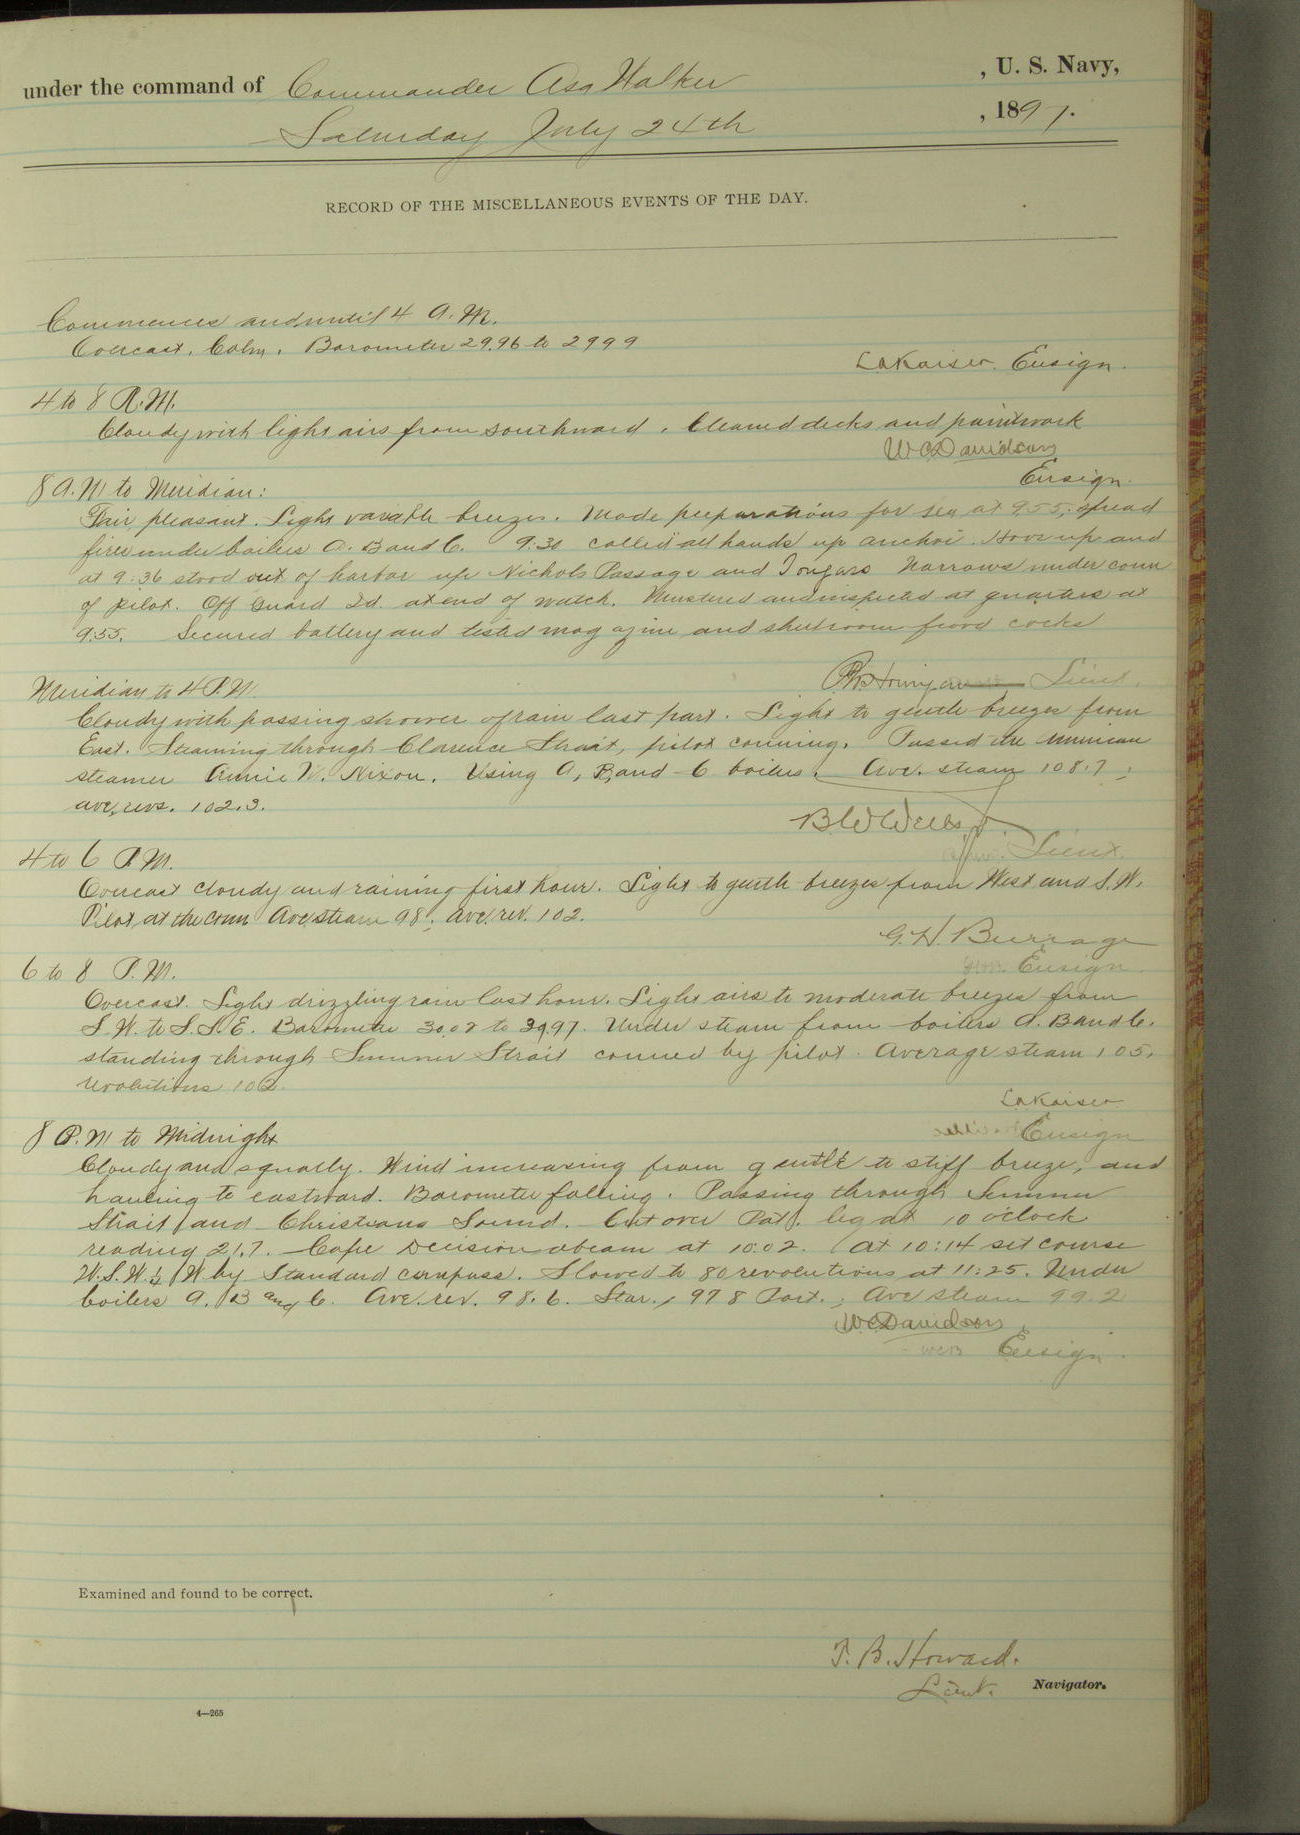 under the command of Commander Asa Walker , U. S. Navy,
Saturday July 24th , 1897.
RECORD OF THE MISCELLANEOUS EVENTS OF THE DAY.
Commences and until 4 A.M.
Overcast. Calm. Barometer 29.96 to 2999
LAKaiser. Ensign.
4 to 8 A.M.
Cloudy with light airs from southward. Cleaned decks and paintwork
WCDavidson
Ensign.
8 A.M to Meridian:
Fair pleasant. Light variable breezes. Made preparations for sea at 9.55; spread
fires under boilers A. B and C. 9:30 called all hands up anchor. Hove up and
at 9:36 stood out of harbor up Nichols Passage and Tongass Narrows under conn
of pilot. Off Guard Id. at end of watch. Mustered and inspected at quarters at
9.55. Secured battery and tested magazine and shellroom flood cocks
Lieut.
Meridian to 4 P.M.
Cloudy with passing shower of rain last part. Light to gentle breezes from
East. Steaming through Clarence Strait, pilot conning. Passed the American
steamer Annie W. Nixon. Using A, B, and C boilers. Ave. steam 108.7;
ave. revs. 102.3.
B.W. Wells Jr.
Lieut.
4 to 6 P.M.
Overcast cloudy and raining first hour. Light to gentle breezes from West and S.W.
Pilot at the conn Ave. steam 98; Ave. rev. 102.
G.H. Burrage
Ensign.
6 to 8 P.M.
Overcast. Light drizzling rain last hour. Light airs to moderate breezes from
S.W. to S.S.E. Barometer 30.02 to 29.97. Under steam from boilers A. B and C.
standing through Sumner Strait conned by pilot. Average steam 105.
revolutions 102.
LAKaiser
Ensign
8 P.M to Midnight
Cloudy and squally. Wind increasing from gentle to stiff breeze, and
hauling to eastward. Barometer falling. Passing through Sumner
Strait and Christians Sound. Cut over Pat. log at 10 o'clock
reading 21.7. Cape Decision abeam at 10:02. At 10:14 set course
W.S.W. ½ W. by Standard compass. Slowed to 80 revolutions at 11:25. Under
boilers A. B and C. Ave. rev. 98.6. Star., 97 8 Port.; Ave steam 99.2
WCDavidson,
Ensign.
Examined and found to be correct.
T. B. Howard.
Lieut. Navigator.
4—265